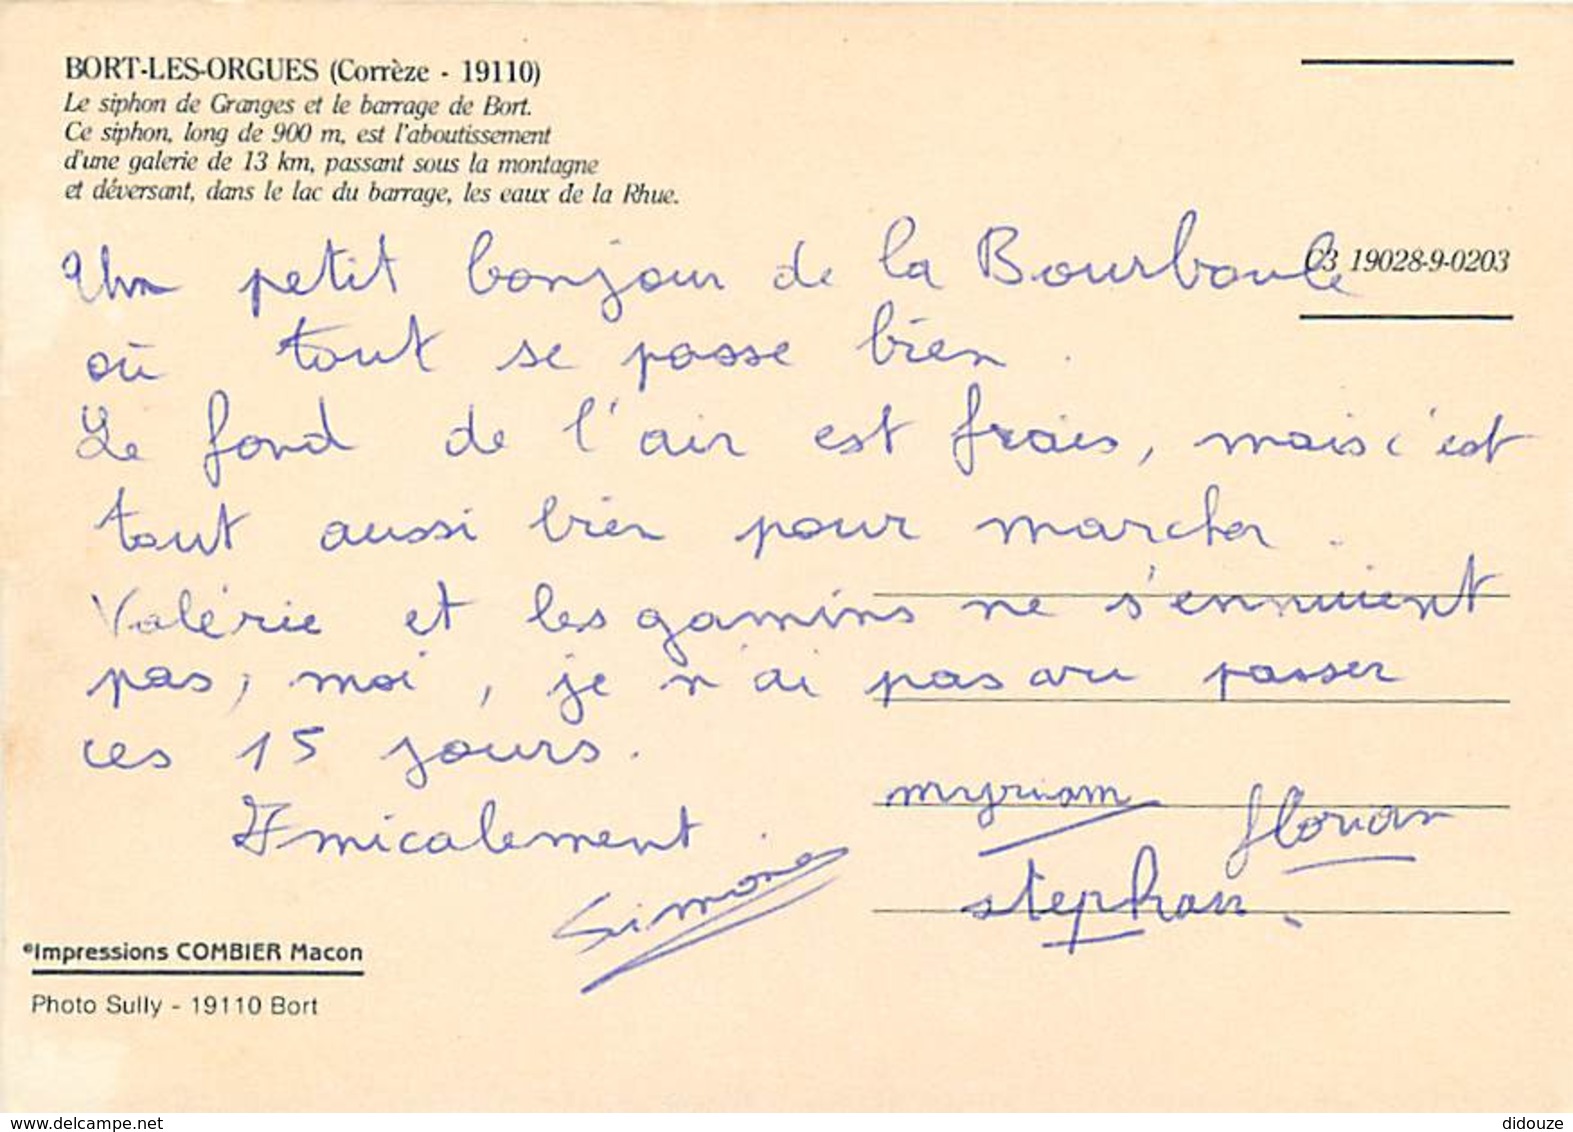 BORT-LES-ORGUES (Corrèze - 19110)
Le siphon de Granges et le barrage de Bort.
Ce siphon, long de 900 m, est l'aboutissement
d'une galerie de 13 km, passant sous la montagne
et déversant, dans le lac du barrage, les eaux de la Rhue.
C3 19028-9-0203
Un petit bonjour de la Bourboule
où tout se passe bien.
Le fond de l'air est frais, mais c'est
tout aussi bien pour marcher.
Valérie et les gamins ne s'ennuient
pas, moi, je n'ai pas vu passer
ces 15 jours.
Amicalement.
Simone
myriam
florian
stephan.
©Impressions COMBIER Macon
Photo Sully - 19110 Bort
didouze